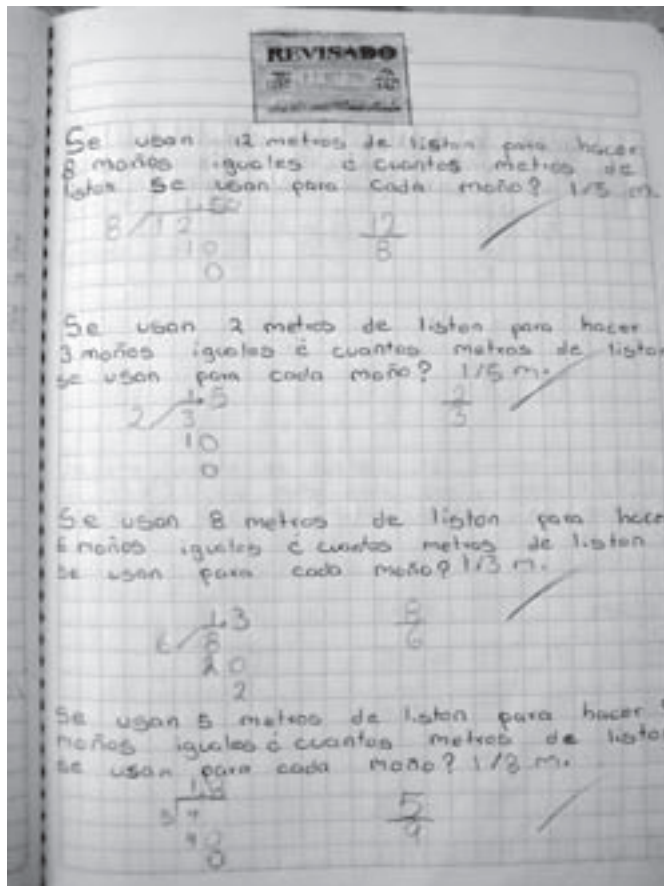 REVISADO
Se usan 12 metros de liston para hacer
8 moños iguales ¿ cuantos metros de
liston se usan para cada moño? 1/5 m.
1.50
8 12 12/8
10
0
Se usan 2 metros de liston para hacer
3 moños iguales ¿ cuantos metros de liston
se usan para cada moño? 1/5 m.
1.5
2 3 2/3
10
0
Se usan 8 metros de liston para hacer
6 moños iguales ¿ cuantos metros de liston
se usan para cada moño? 1/3 m.
1.3
6 8 8/6
20
2
Se usan 5 metros de liston para hacer
moños iguales ¿ cuantos metros de liston
se usan para cada moño? 1/8 m.
1.8
5 9 5/9
40
0